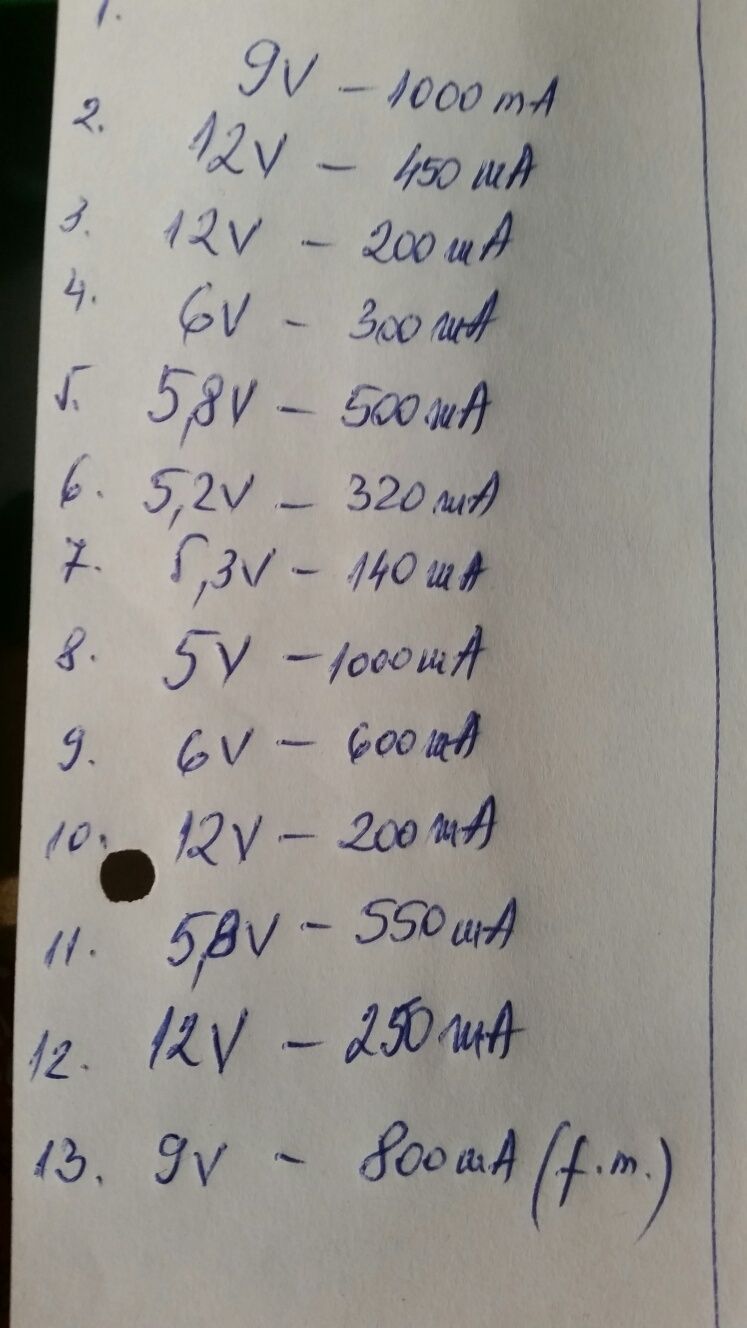 1. 9V – 1000 mA
2. 12V – 450 mA
3. 12V – 200 mA
4. 6V – 300 mA
5. 5,8V – 500 mA
6. 5,2V – 320 mA
7. 5,3V – 140 mA
8. 5V – 1000 mA
9. 6V – 600 mA
10. 12V – 200 mA
11. 5,8V – 550 mA
12. 12V – 250 mA
13. 9V – 800 mA (f.m.)